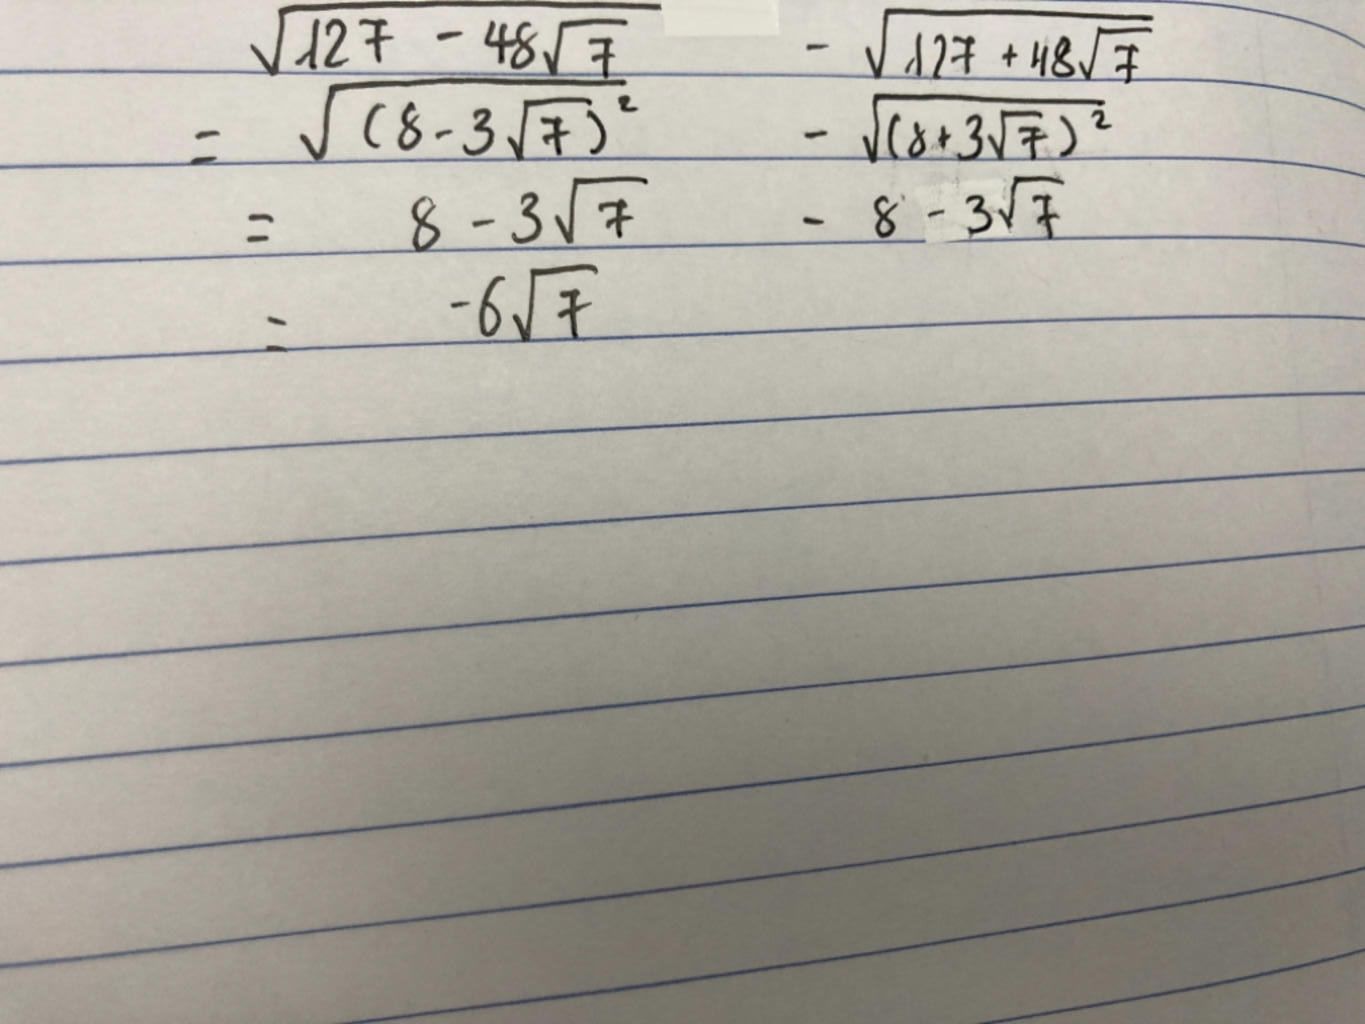 √(127 - 48√7) - √(127 + 48√7)
= √((8 - 3√7)²) - √((8 + 3√7)²)
= 8 - 3√7 - 8 - 3√7
= -6√7